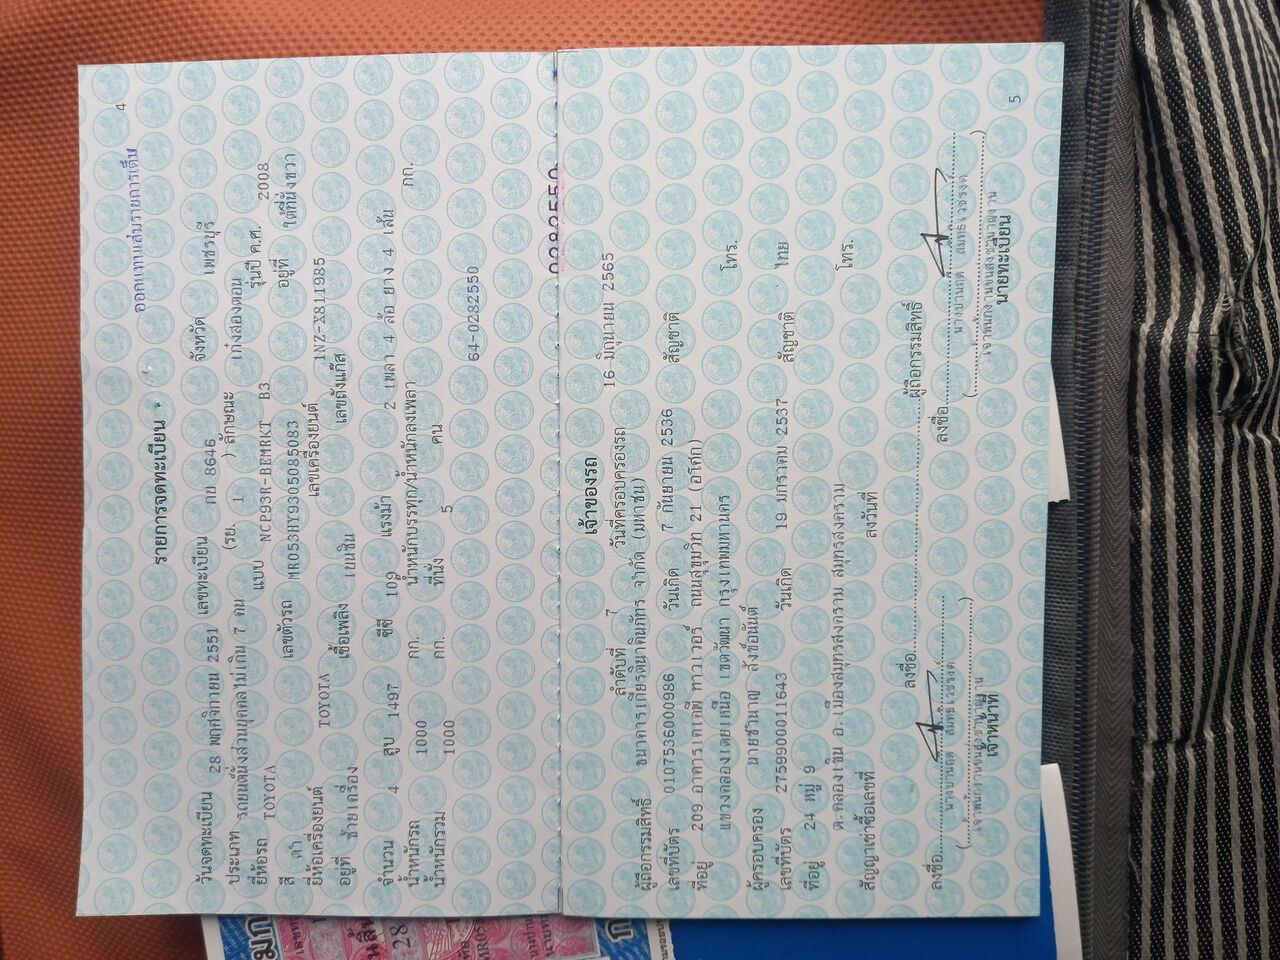 4
ออกแทนเล่มรายการเต็ม
รายการจดทะเบียน
วันจดทะเบียน 28 พฤศจิกายน 2551 เลขทะเบียน กข 8646 จังหวัด เพชรบุรี
ประเภท รถยนต์นั่งส่วนบุคคลไม่เกิน 7 คน (รย. 1 ) ลักษณะ เก๋งสองตอน
ยี่ห้อรถ TOYOTA แบบ NCP93R-BEMRKT B3 รุ่นปี ค.ศ. 2008
สี ดำ เลขตัวรถ MR053HY9305085083 อยู่ที่ ใต้ที่นั่งขวา
ยี่ห้อเครื่องยนต์ TOYOTA เลขเครื่องยนต์ 1NZ-X811985
อยู่ที่ ซ้ายเครื่อง เชื้อเพลิง เบนซิน เลขถังแก๊ส
จำนวน 4 สูบ 1497 ซีซี 109 แรงม้า 2 เพลา 4 ล้อ ยาง 4 เส้น
น้ำหนักรถ 1000 กก. น้ำหนักบรรทุก/น้ำหนักลงเพลา กก.
น้ำหนักรวม 1000 กก. ที่นั่ง 5 คน
64-0282550
5
เจ้าของรถ
ลำดับที่ 7 วันที่ครอบครองรถ 16 มิถุนายน 2565
ผู้ถือกรรมสิทธิ์ ธนาคารเกียรตินาคินภัทร จำกัด (มหาชน)
เลขที่บัตร 0107536000986 วันเกิด 7 กันยายน 2536 สัญชาติ
ที่อยู่ 209 อาคารเคเคพี ทาวเวอร์ ถนนสุขุมวิท 21 (อโศก)
แขวงคลองเตยเหนือ เขตวัฒนา กรุงเทพมหานคร โทร.
ผู้ครอบครอง นายชำนาญ
เลขที่บัตร 2759900011643 วันเกิด 19 มกราคม 2537 สัญชาติ ไทย
ที่อยู่ 24 หมู่ 9
ต.คลองเขิน อ.เมืองสมุทรสงคราม สมุทรสงคราม โทร.
สัญญาเช่าซื้อเลขที่ ลงวันที่
ลงชื่อ ผู้ถือกรรมสิทธิ์
ลงชื่อ ลงชื่อ
เจ้าหน้าที่ นายทะเบียน
28